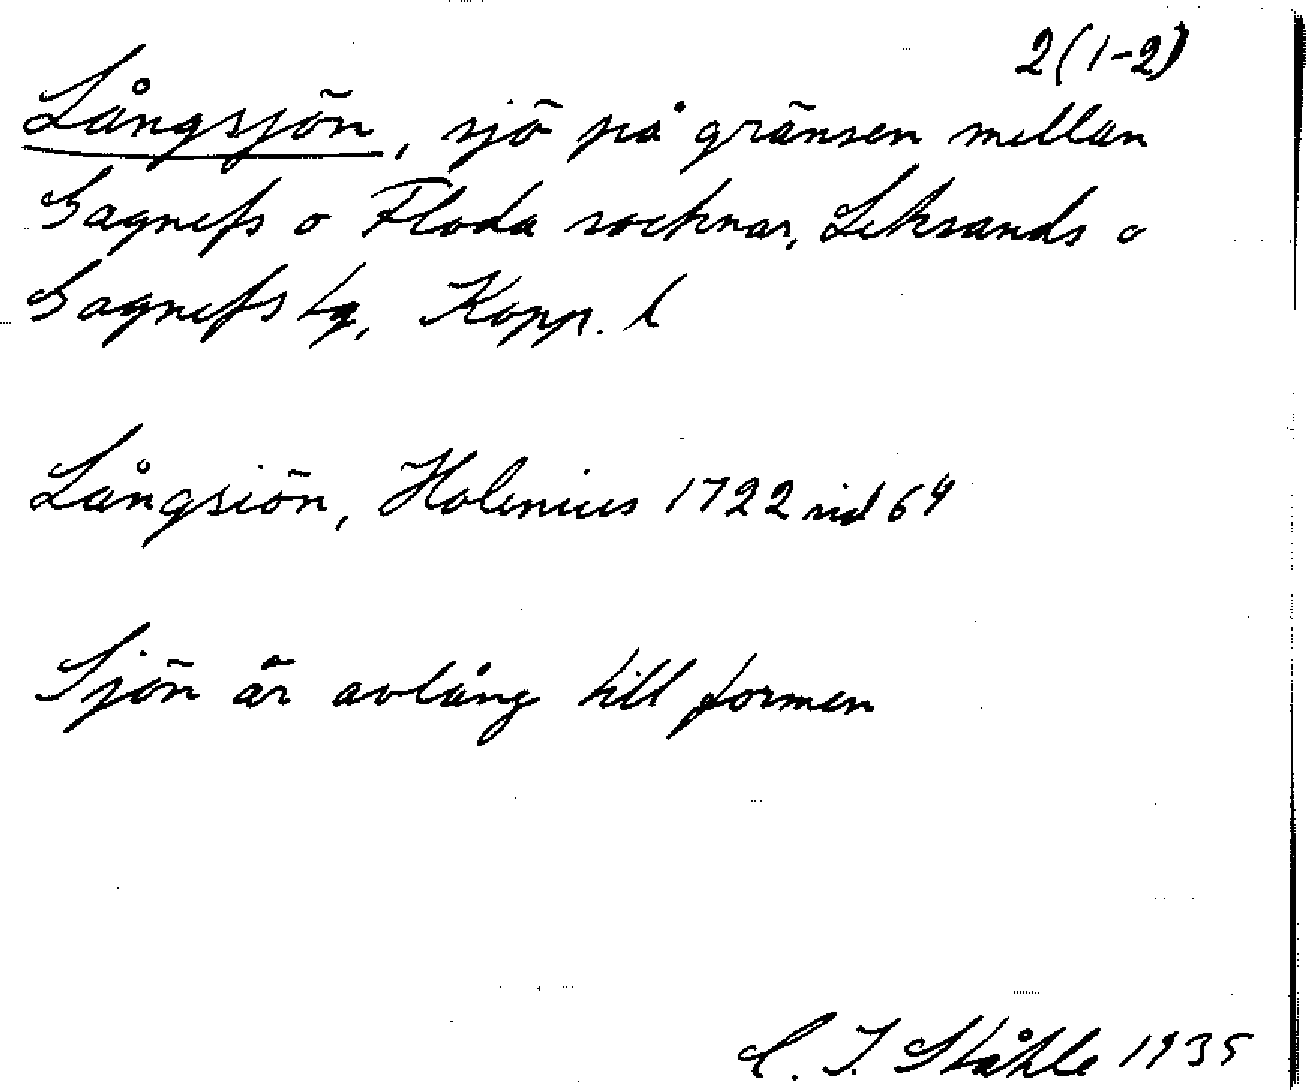 2(1-2)
Långsjön, sjö på gränsen mellan
Gagnefs o Floda socknar, Leksands o
Gagnefs tg, Kopp. l
Långsiön, Holenius 1722 sid 64
Sjön är avlång till formen
C. I. Ståhle 1935